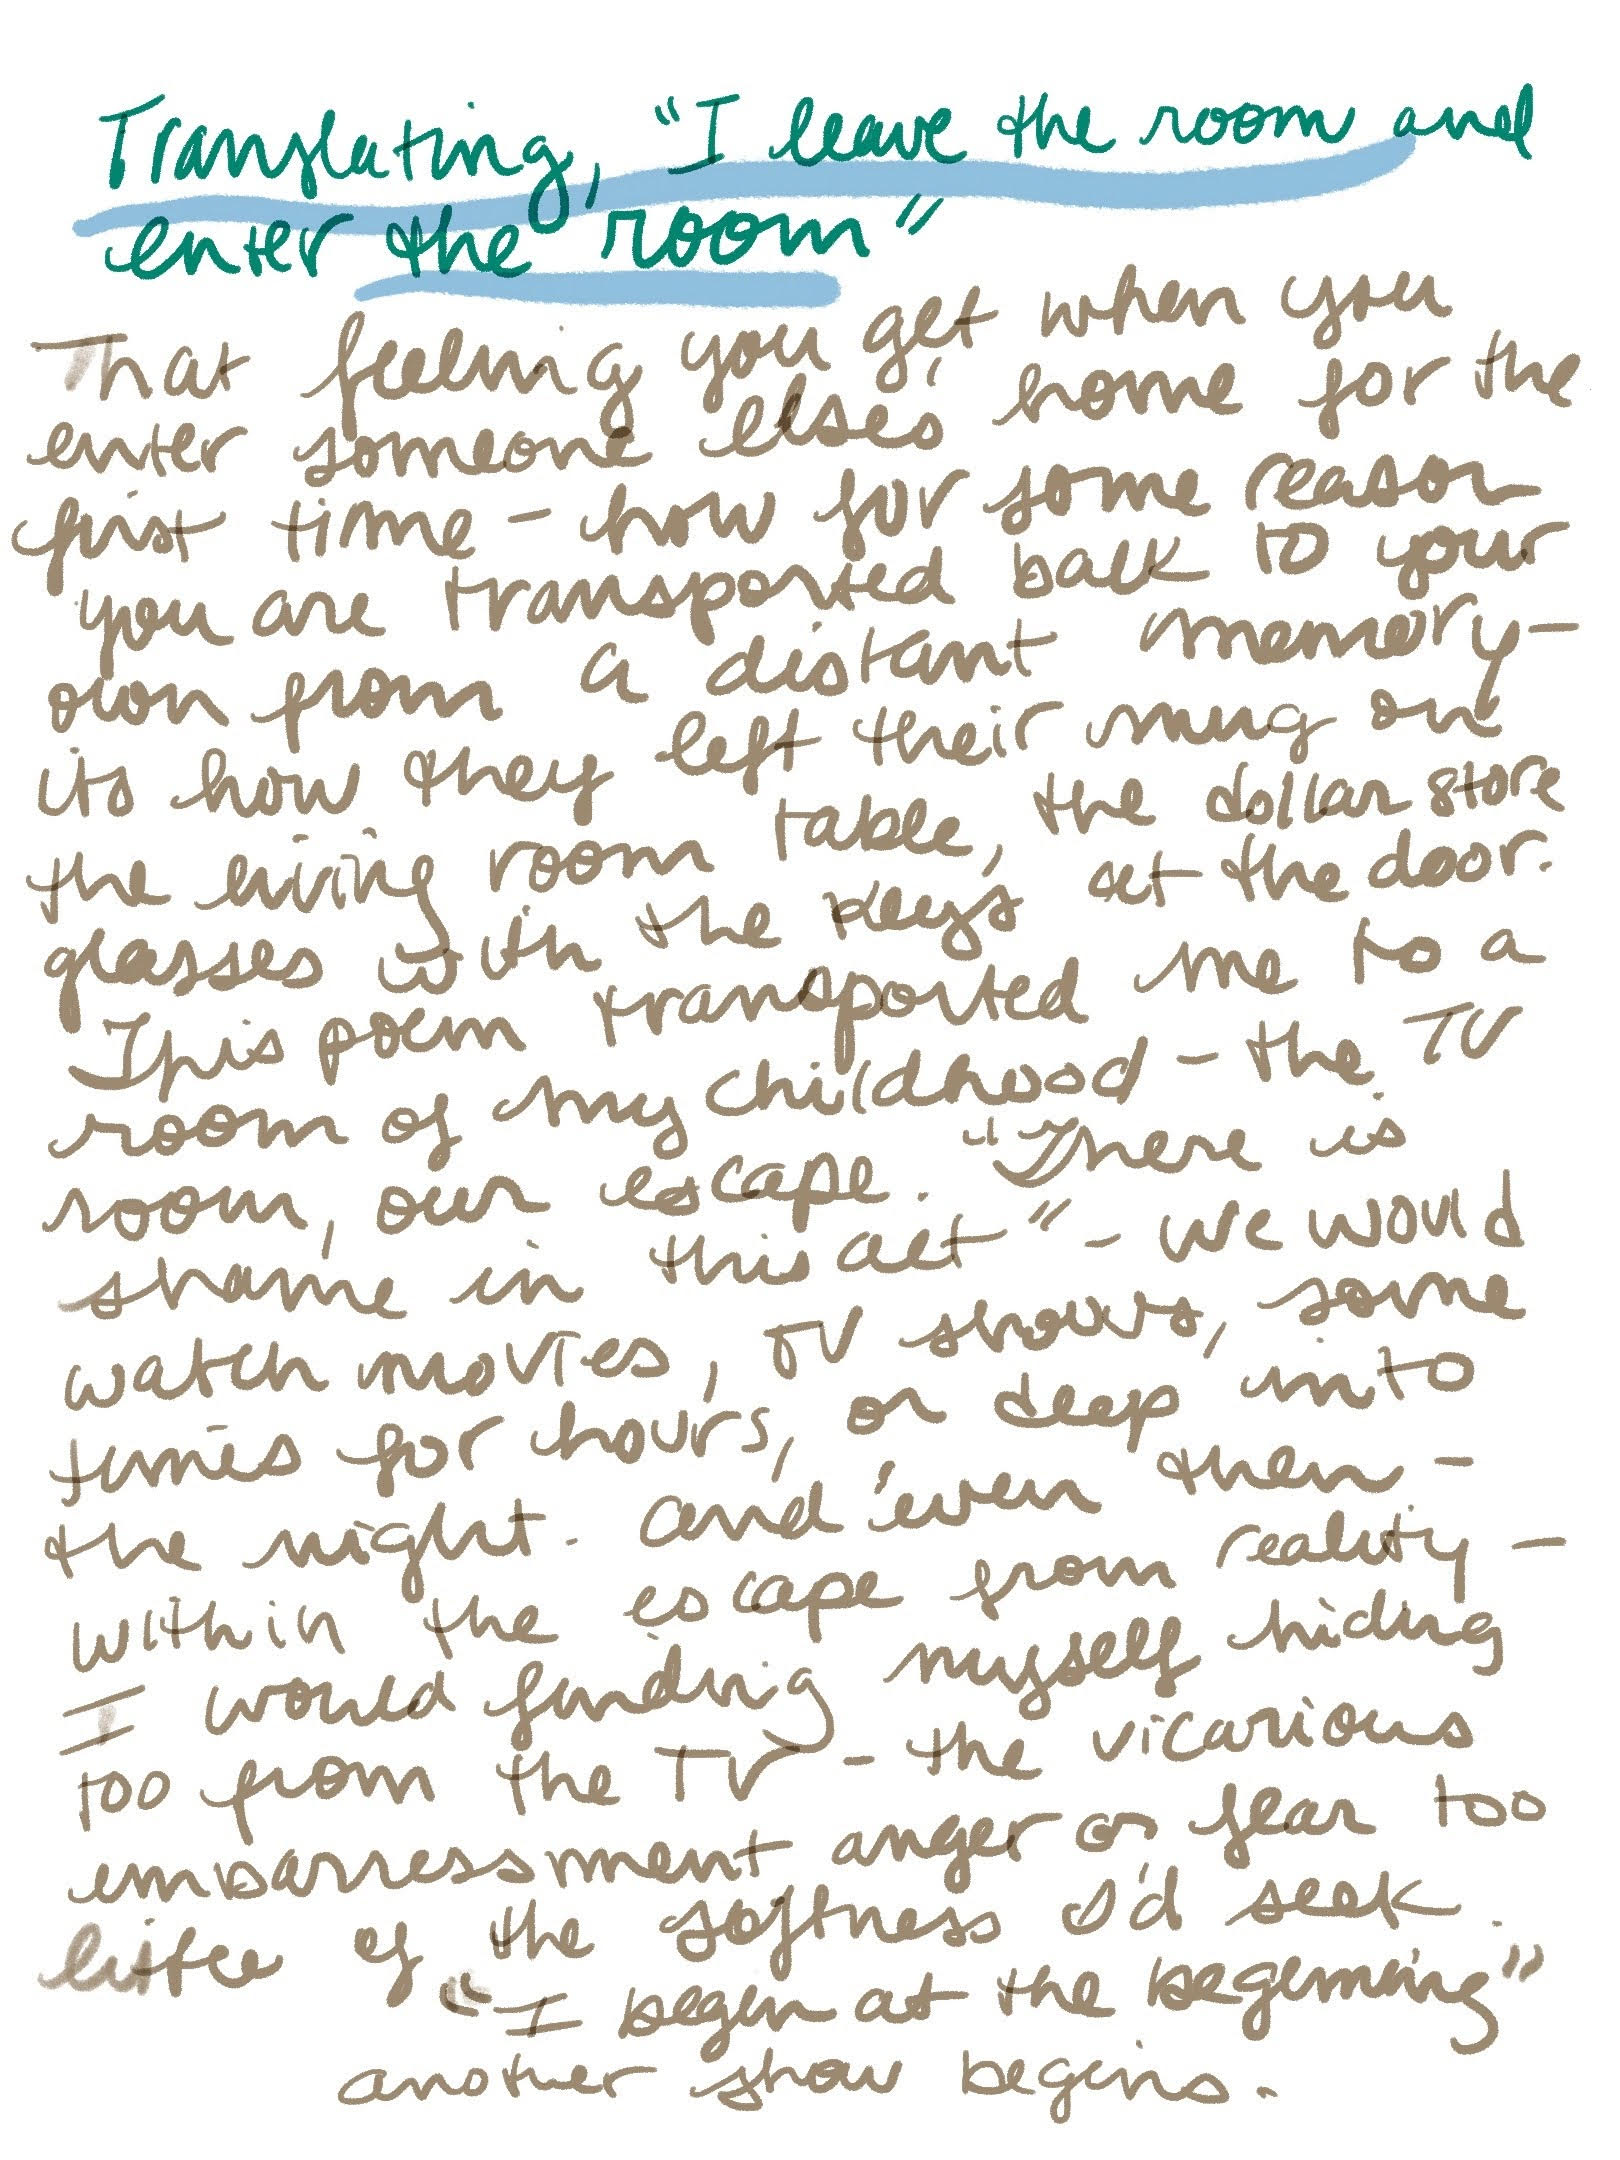 Translating, "I leave the room and
enter the room"
That feeling you get when you
enter someone else's home for the
first time - how for some reason
you are transported back to your
own from a distant memory -
its how they left their mug on
the living room table, the dollar store
glasses with the keys at the door.
This poem transported me to a
room of my childhood - the TV
room, our escape. "There is
shame in this act" - we would
watch movies, TV shows, some
times for hours, or deep into
the night. and even then -
within the escape from reality -
I would finding myself hiding
too from the TV - the vicarious
embarressment anger or fear too
little of the softness I'd seek.
"I begin at the beginning"
another show begins.